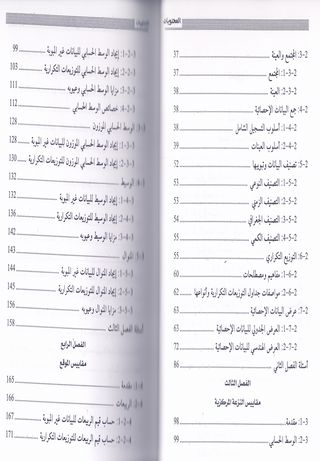 المحتويات
2-3: المجتمع والعينة 37
2-3-1: المجتمع 37
2-3-2: العينة 38
2-4: جمع البيانات الإحصائية 38
2-4-1: أسلوب التسجيل الشامل 38
2-4-2: أسلوب العينات 39
2-5: تصنيف البيانات وتبويبها 52
2-5-1: التصنيف النوعي 53
2-5-2: التصنيف الزمني 53
2-5-3: التصنيف الجغرافي 54
2-5-4: التصنيف الكمي 55
2-6: التوزيع التكراري 55
2-6-1: مفاهيم ومصطلحات 60
2-6-2: مواصفات جداول التوزيعات التكرارية وأنواعها 62
2-7: عرض البيانات الإحصائية 63
2-7-1: العرض الجدولي للبيانات الإحصائية 63
2-7-2: العرض الهندسي للبيانات الإحصائية 72
أسئلة الفصل الثاني 86
الفصل الثالث
مقاييس النزعة المركزية
3-1: مقدمة 98
3-2: الوسط الحسابي 99
3-2-1: إيجاد الوسط الحسابي للبيانات غير المبوبة 99
3-2-2: إيجاد الوسط الحسابي للتوزيعات التكرارية 103
3-2-3: مزايا الوسط الحسابي وعيوبه 111
3-2-4: خصائص الوسط الحسابي 112
3-3: الوسط الحسابي الموزون 128
3-3-1: إيجاد الوسط الحسابي الموزون للبيانات غير المبوبة 128
3-3-2: إيجاد الوسط الحسابي الموزون للتوزيعات التكرارية 130
3-4: الوسيط 132
3-4-1: إيجاد الوسيط للبيانات غير المبوبة 132
3-4-2: إيجاد الوسيط للتوزيعات التكرارية 136
3-4-3: مزايا الوسيط وعيوبه 142
3-5: المنوال 143
3-5-1: إيجاد المنوال للبيانات غير المبوبة 144
3-5-2: إيجاد المنوال للتوزيعات التكرارية 145
3-5-3: مزايا المنوال وعيوبه 156
أسئلة الفصل الثالث 158
الفصل الرابع
مقاييس الموقع
4-1: مقدمة 165
4-2: الربيعات 166
4-2-1: حساب قيم الربيعات للبيانات غير المبوبة 167
4-2-2: حساب قيم الربيعات للتوزيعات التكرارية 171